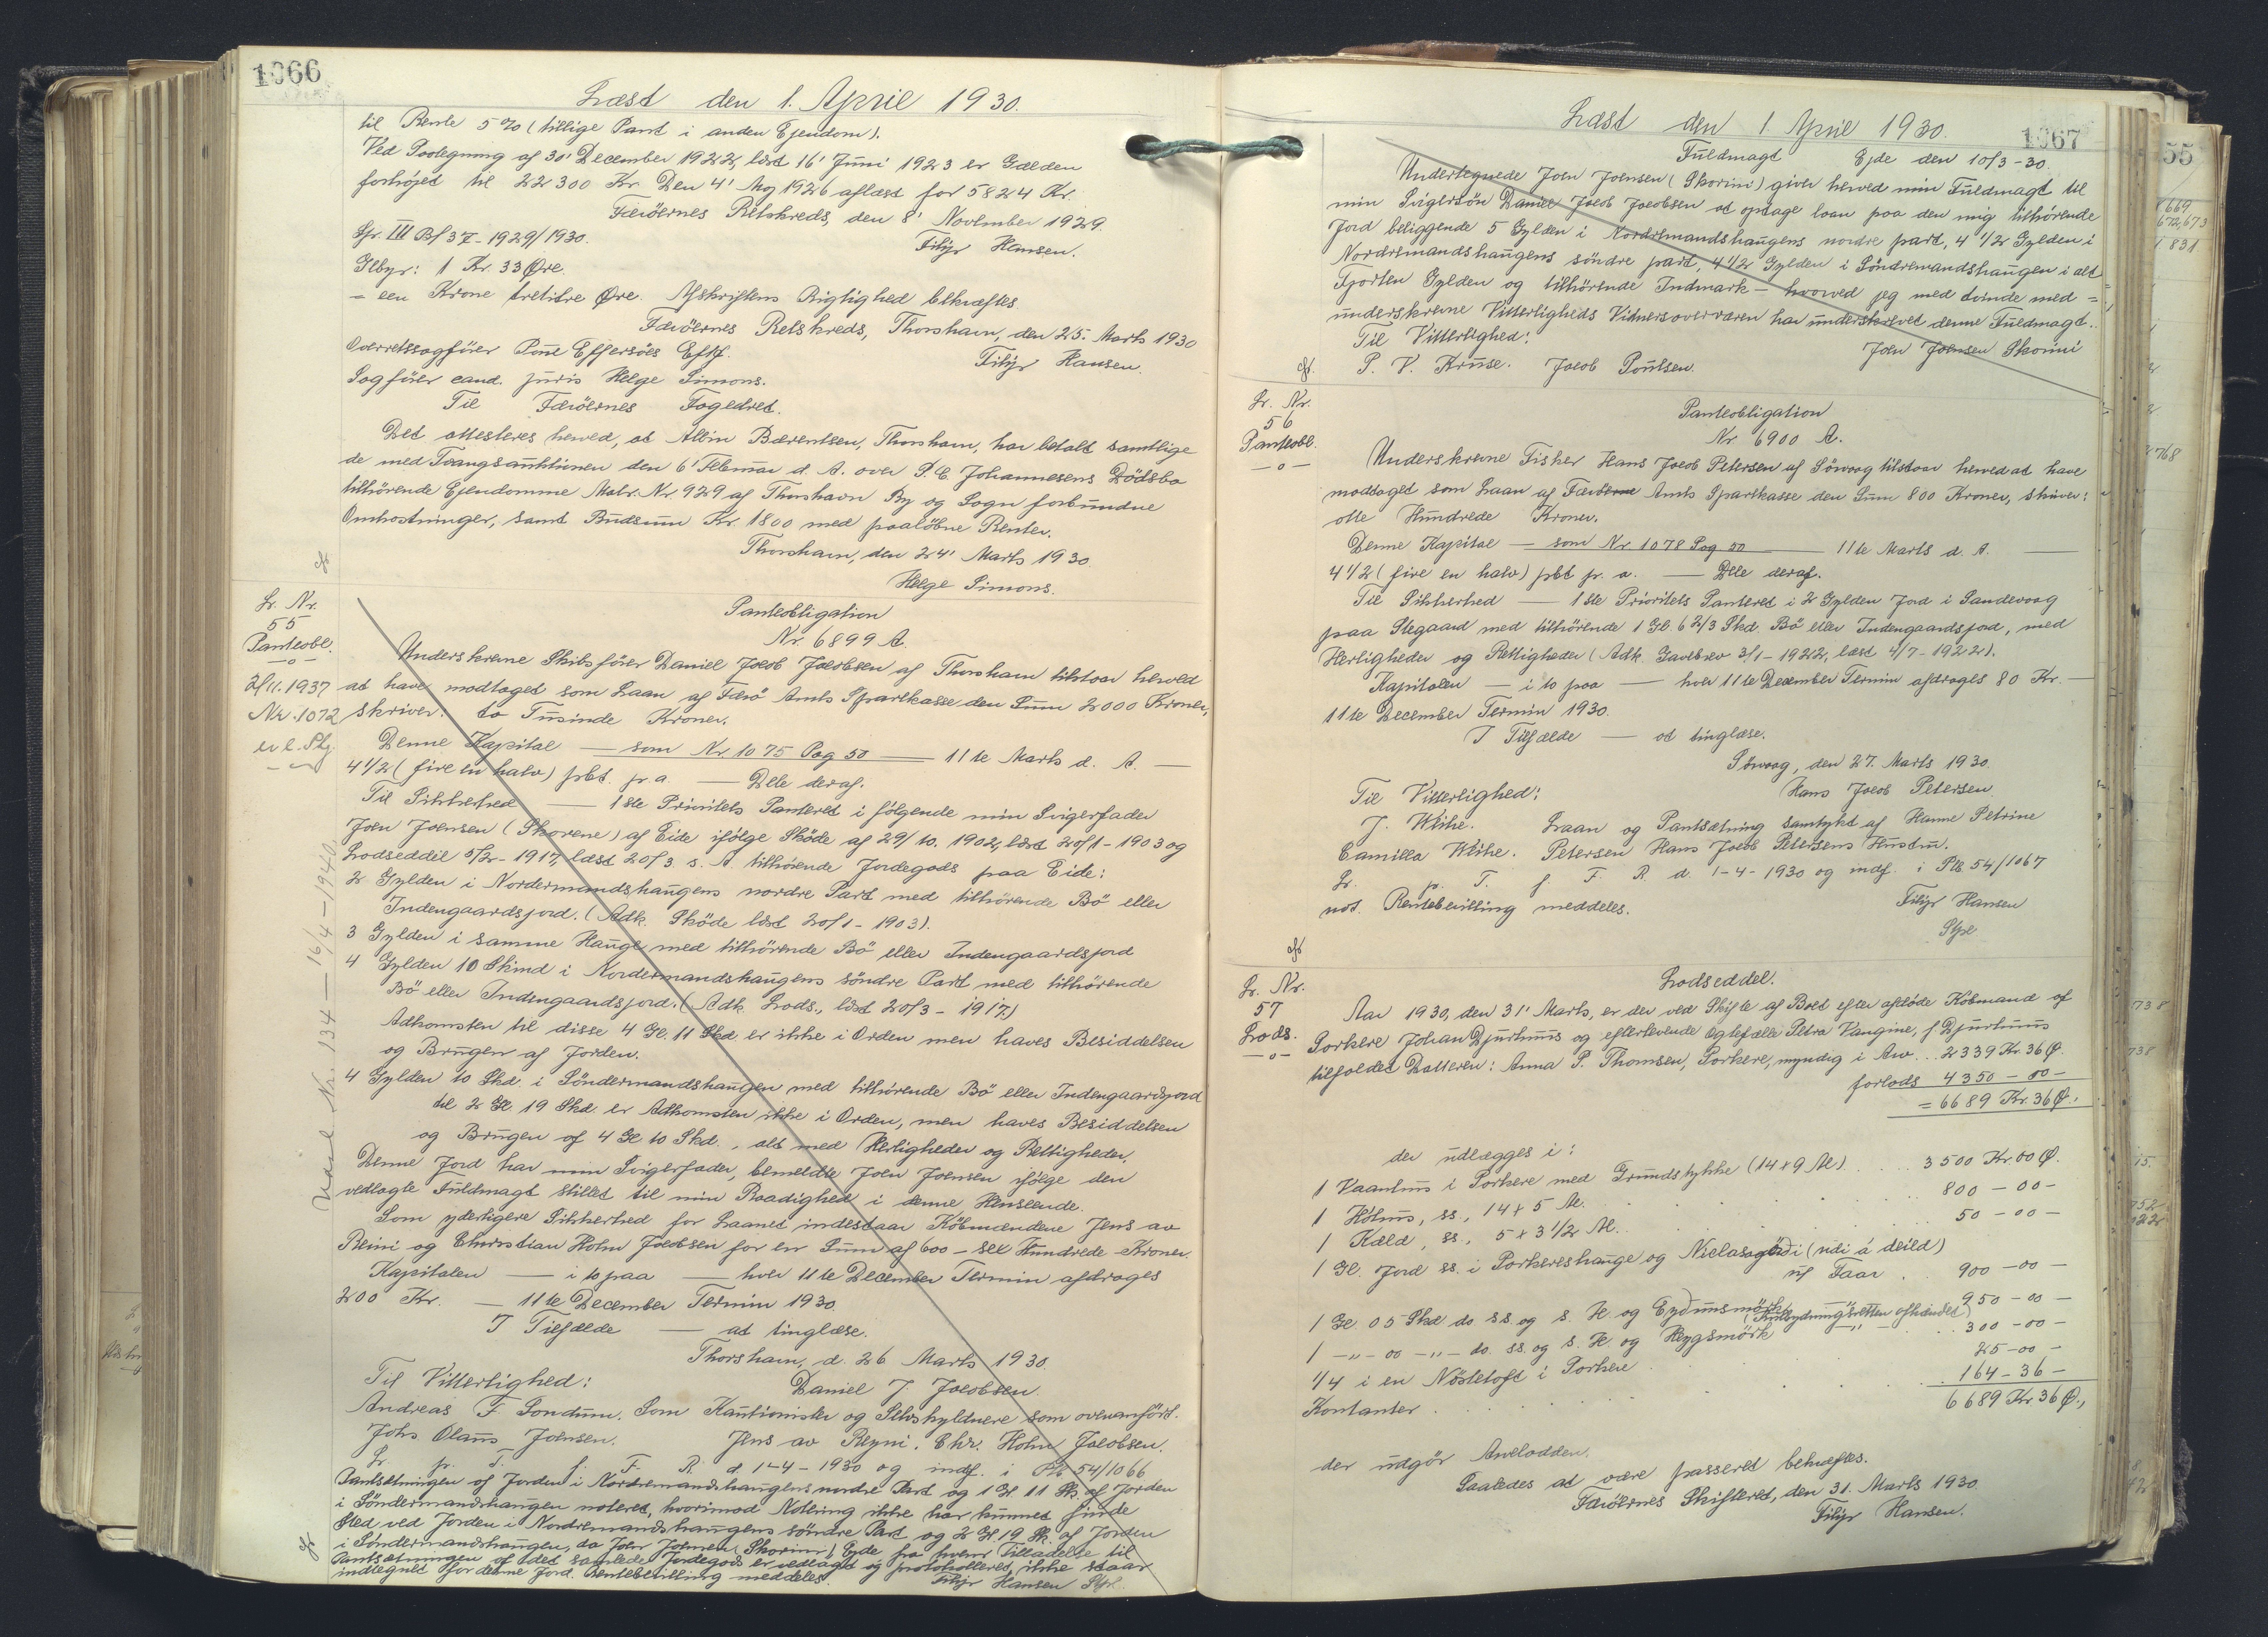 1066
Læst den 1. April 1930.
til Rente 5% (tillige Pant i anden Ejendom).
Ved Paategning af 30' December 1922, læst 16' Juni 1923 er Gælden
forhøjet til 22300 Kr. Den 4' Aug 1926 aflæst for 5824 Kr.
Færöernes Retskreds, den 8' November 1929.
Filip Hansen.
Spr. III Bl 37-1929/1930.
Gebyr: 1 Kr. 33 Øre.
= een Krone tretitre Øre. Afskriftens Rigtighed bekræftes
Færöernes Retskreds, Thorshavn, den 25. Marts 1930
Filip Hansen.
Overretssagförer Poul Effersöes Eftf.
Sagförer cand. juris Helge Simons.
Til Færöernes Fogedret.
Det attesteres herved, at Albin Bærentsen, Thorshavn, har betalt samtlige
de med Tvangsauktionen den 6' Februar d. A. over P. C. Johannesens Dödsbo
tilhörende Ejendomme Matr. Nr 929 af Thorshavn By og Sogn forbundne
Omkostninger, samt Budsum Kr. 1800 med paalöbne Renter.
Thorshavn, den 24' Marts 1930.
Helge Simons.
Lr. Nr.
55
Panteobl.
-o-
2/11.1937
Nr. 1072
Panteobligation
Nr. 6899 A.
Underskrevne Skibsförer Daniel Jacob Jacobsen af Thorshavn tilstaar herved
at have modtaget som Laan af Færö Amts Sparekasse den Sum 2000 Kroner,
skriver: to Tusinde Kroner.
Denne Kapital — som Nr. 1075 Pag 50 — 11te Marts d. A. —
4 1/2 (fire en halv) pct. p. a. — Dele deraf.
Til Sikkerhed — 1ste Prioritets Panteret i fölgende min Svigerfader
Joen Joensen (Skorene) af Eide ifölge Sköde af 29/10. 1902, læst 20/1-1903 og
Lodseddel 5/2-1917, læst 20/3 s. A tilhörende Jordegods paa Eide:
2 Gylden i Nordermandshaugens nordre Part med tilhörende Bö eller
Indengaardsjord. (Adk. Sköde læst 20/1-1903).
3 Gylden i samme Hauge med tilhörende Bö eller Indengaardsjord
4 Gylden 10 Skind i Nordermandshaugens söndre Part med tilhörende
Bö eller Indengaardsjord. (Adk. Lods., læst 20/3-1917)
Adkomsten til disse 4 Gl. 11 Skd. er ikke i Orden men haves Besiddelsen
og Brugen af Jorden.
4 Gylden 10 Skd. i Söndermandshaugen med tilhörende Bö eller Indengaardsjord
til 2 Gl. 19 Skd. er Adkomsten ikke i Orden, men haves Besiddelsen
og Brugen af 4 Gl 10 Skd., alt med Herligheder og Rettigheder.
Denne Jord har min Svigerfader, bemeldte Joen Joensen ifölge den
vedlagte Fuldmagt stillet til min Raadighed i denne Henseende.
Som yderligere Sikkerhed for Laanet indestaar Köbmændene Jens av
Reini og Christian Holm Jacobsen for en Sum af 600 - sex Hundrede - Kroner.
Kapitalen — i to paa — hver 11te December Termin afdrages
200 Kr. — 11te December Termin 1930.
I Tilfælde — at tinglæse.
Thorshavn, d. 26 Marts 1930.
Til Vitterlighed: Daniel J. Jacobsen.
Andreas F Sondum. Som Kautionister og Selvskyldnere som ovenanfört.
Johs Olaus Joensen. Jens av Reyni. Chr. Holm Jacobsen.
Lr. p. T. f. F. R. d. 1-4-1930 og indf. i Ptb 54/1066
Pantsætningen af Jorden i Nordremandshaugens nordre Part og 1 Gl. 11 Sk. af Jorden
i Söndermandshaugen noteret, hvorimod Notering ikke har kunnet finde
Sted ved Jorden i Nordremandshaugens söndre Part og 2 Gl. 19 Sk. af Jorden
i Söndermandshaugen, da Joen Joensen (Skorini) Eyde fra hvem Tilladelse til
Pantsætningen af det samlede Jordegods er vedlagt og protokolleret, ikke staar
indtegnet for denne Jord. Rentebevilling meddeles.
Filip Hansen Spr.
Nr. 134 — 16/4-1940.
1067
Læst den 1. April 1930.
Fuldmagt Ejde den 10/3-30.
Undertegnede Joen Joensen (Skorini) giver herved min Fuldmagt til
min Svigersön Daniel Jacob Jacobsen at optage laan paa den mig tilhörende
Jord beliggende 5 Gylden i Nordremandshaugens nordre part, 4 1/2 Gylden i
Nordremandshaugens söndre part, 4 1/2 Gylden i Söndremandshaugen i alt
Fjorten Gylden og tilhörende Indmark - hvorved jeg med tvinde med=
underskrevne Vitterligheds Vidnersoverværen har underskrevet denne Fuldmagt.
Til Vitterlighed: Joen Joensen Skorini
P. V. Kruse. Jacob Poulsen.
Lr. Nr.
56
Panteobl.
-o-
Panteobligation
Nr 6900 A.
Underskrevne Fisker Hans Jacob Petersen af Sörvaag tilstaar herved at have
modtaget som Laan af Færöerne Amts Sparekasse den Sum 800 Kroner, skriver:
otte Hundrede Kroner.
Denne Kapital — som Nr 1078 Pag 50 — 11te Marts d. A. —
4 1/2 (fire en halv) pct p. a. — Dele deraf.
Til Sikkerhed — 1ste Prioritets Panteret i 2 Gylden Jord i Sandevaag
paa Stegaard med tilhörende 1 Gl. 6 2/3 Skd. Bö eller Indengaardsjord, med
Herligheder og Rettigheder (Adk. Gavebrev 3/1-1922, læst 4/7-1922).
Kapitalen — i to paa — hver 11te December Termin afdrages 80 Kr. —
11te December Termin 1930.
I Tilfælde — at tinglæse.
Sörvaag, den 27. Marts 1930.
Til Vitterlighed: Hans Jacob Petersen.
J. Weihe. Laan og Pantsætning samtykt af Hanne Petrine
Camilla Weihe. Petersen Hans Jacob Petersens Hustru.
Lr. p. T. f. F. R. d. 1-4-1930 og indf. i Ptb 54/1067
not. Rentebevilling meddeles.
Filip Hansen
Spr
Lr. Nr.
57
Lods.
-o-
Lodseddel.
Aar 1930, den 31' Marts, er der ved Skifte af Boet efter afdöde Köbmand af
Porkere Johan Djurhuus og efterlevende Ægtefælle Petra Vangine, f Djurhuus
tilfaldet Datteren: Anna P. Thomsen, Porkere, myndig i Arv... 2339 Kr. 36 Ø.
forlods 4350 - 00 -
= 6689 Kr. 36 Ø.
der udlægges i:
1 Vaanhus i Porkere med Grundstykke (14x9 Al) .... 3500 Kr. 00 Ø.
1 Höhus, ss., 14x5 Al. 800 - 00 -
1 Kæld., ss., 5 x 3 1/2 Al. 50 - 00 -
1 Gl. Jord ss. i Porkereshauge og Niclasagärdi (udi á deild)
uf Faar .. 900 - 00 -
1 Gl. 05 Skd do. ss. og s. H. og Eydunsmörk 950 - 00 -
1 -"- 00 -"- do. ss. og s. H. og Heygsmörk -"- .. 300 - 00 -
1/4 i en Nöstetoft i Porkere 25 - 00 -
Kontanter 164 - 36 -
6689 Kr. 36 Ø.,
der udgör Arvelodden.
Saaledes at være passeret bekræftes.
Færöernes Skifteret, den 31. Marts 1930.
Filip Hansen.
55